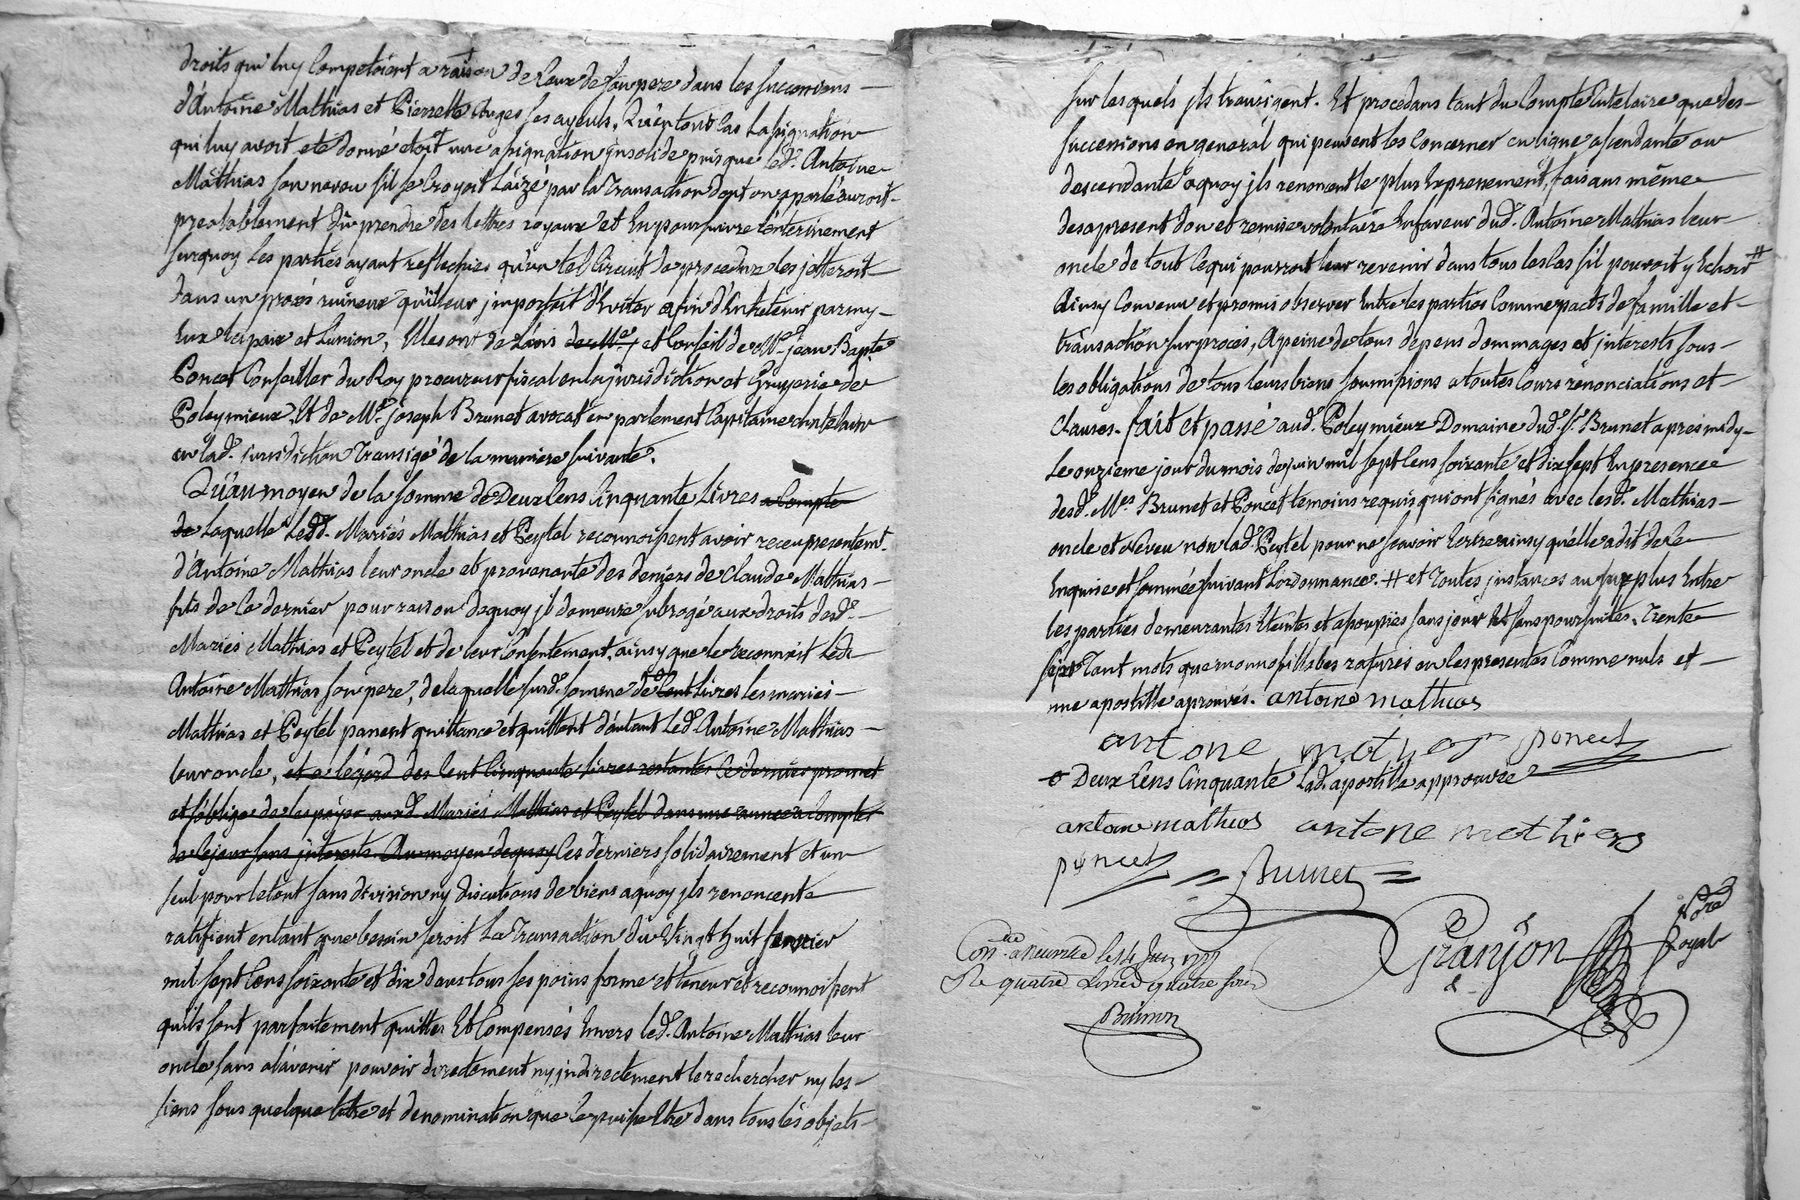 droits qui luy competoient a raison de ceux de son pere dans les successions
d'Antoine Mathias et Pierrette Auges ses ayeuls, Qu'en tous cas l'assignation
qui luy avoit eté donné etoit une assignation insolide puis que led. Antoine
Mathias son neveu s'il se croyoit Laizé par la Transaction dont on a parlé auroit
prealablement dû prendre des lettres royaux et En poursuivre l'enterinement
surquoy Les parties ayant reflechies qu'un tel Circuit de procedure les jetteroit
dans un procés ruineux qu'il leur importoit d'Eviter afin d'Entretenir parmy
Eux la paix et L'union, Elles ont de L'avis de Me et Conseil de Me. jean Bapte
Poncet Conseiller du Roy procureur fiscal en la jurisdiction et Gruyerie de
Poleymieux, Et de Me. joseph Brunet avocat en parlement Capitaine chatelain
en lad. jurisdiction Transigé de la maniere suivante.
Qu'au moyen de la somme de Deux Cens Cinquante Livres a Compte
de Laquelle Lesd. Mariés Mathias et Peytel reconnoissent avoir receu presentemt.
d'Antoine Mathias leur oncle et provenante des deniers de Claude Mathias
fils de ce dernier pour raison dequoy il demeure subrogé aux droits desd.
Mariés Mathias et Peytel et de leur Consentement, ainsy que le reconnoit led.
Antoine Mathias son pere, de laquelle susd. somme de Cent Livres les mariés
Mathias et Peytel passent quittance et quittent d'autant Led. Antoine Mathias
leur oncle, et a l'égard des Cent Cinquante livres restantes Ce dernier promet
et s'oblige de les payer auxd. Mariés Mathias et Peytel dans une année a Compter
de Cejour sans interests. Au moyen dequoy Ces derniers solidairement et un
seul pour le tout sans division ny discutions de biens a quoy ils renoncent
ratifient entant que besoin seroit La Transaction du Vingt huit fevrier
mil sept Cens soixante et dix dans tous ses poins forme et teneur et reconnoissent
qu'ils sont parfaitement quittes Et Compensés Envers led. Antoine Mathias leur
oncle sans a l'avenir pouvoir directement ny indirectement le rechercher ny les
siens sous quelque titre et denomination que ce puisse Etre dans tous les objets
sur lesquels ils transigent. Et procedans tant du Compte tutelaire que des
successions en general qui peuvent les Concerner en ligne assendante ou
dessendante aquoy ils renoncent le plus Expressement, faisans même
des apresent don et remise volontaire En faveur dud. Antoine Mathias leur
oncle de tout Ce qui pourroit leur revenir dans tous les Cas s'il pouvoit y Echoir #
Ainsy Convenu et promis observer Entre les parties Comme pacts de famille et
transaction sur procés, A peine de tous depens dommages et interests sous
les obligations de tous leurs biens soumissions a toutes Cours renonciations et
Clauses. fait et passé aud. Poleymieux Domaine dud. Sr. Brunet apres midy
Le onzieme jour du mois de juin mil sept Cens soixante et dix sept En presence
desd. Mes. Brunet et Poncet temoins requis qui ont signés avec lesd. Mathias
oncle et Neveu non lad. Peytel pour ne sçavoir Ecrire ainsy qu'elle a dit de ce
Enquise et sommée suivant L'ordonnance. # et Toutes instances au surplus Entre
les parties demeurantes Eteintes et assoupies sans jour Et sans poursuites. Trente
sept Tant mots que monossillabes raturés en les presentes Comme nuls et
une apostille aprouvés. antoine mathias
antone mathias poncet
o Deux Cens Cinquante Lad. apostille approuvée
antoine mathias antone mathias
poncet Brunet
Granjon Nore
Royal
Con.lé a Neuville le 14 Juin 1777
Re quatre Livres quatre sous